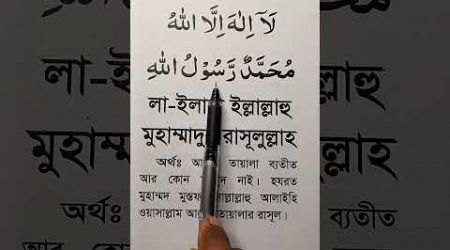 لَآ اِلٰهَ اِلَّا اللّٰهُ
مُحَمَّدٌ رَّسُوْلُ اللّٰهِ
ইল্লাল্লাহু
রাসূলুল্লাহ
অর্থঃ তায়ালা ব্যতীত
আর কোন নাই। হযরত
মুহাম্মদ আলাইহি
ওয়াসাল্লাম রাসূল।